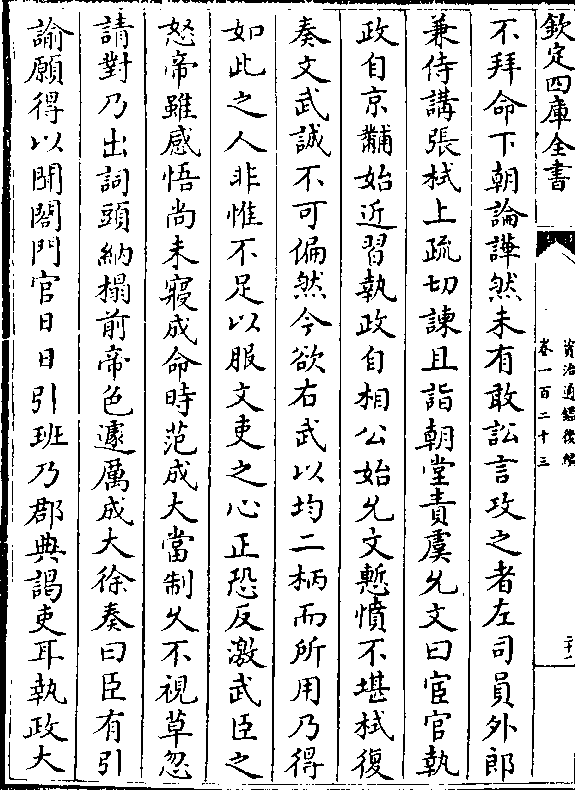 欽定四庫全書
資治通鑑後編
卷一百二十三
不拜命下朝論譁然未有敢訟言攻之者左司員外郎
兼侍講張栻上疏切諫且詣朝堂責虞允文曰宦官執
政自京黼始近習執政自相公始允文慙憤不堪栻復
奏文武誠不可偏然今欲右武以均二柄而所用乃得
如此之人非惟不足以服文吏之心正恐反激武臣之
怒帝雖感悟尚未寢成命時范成大當制久不視草忽
請對乃出詞頭納榻前帝色遽厲成大徐奏曰臣有引
諭願得以聞閤門官日日引班乃郡典謁吏耳執政大